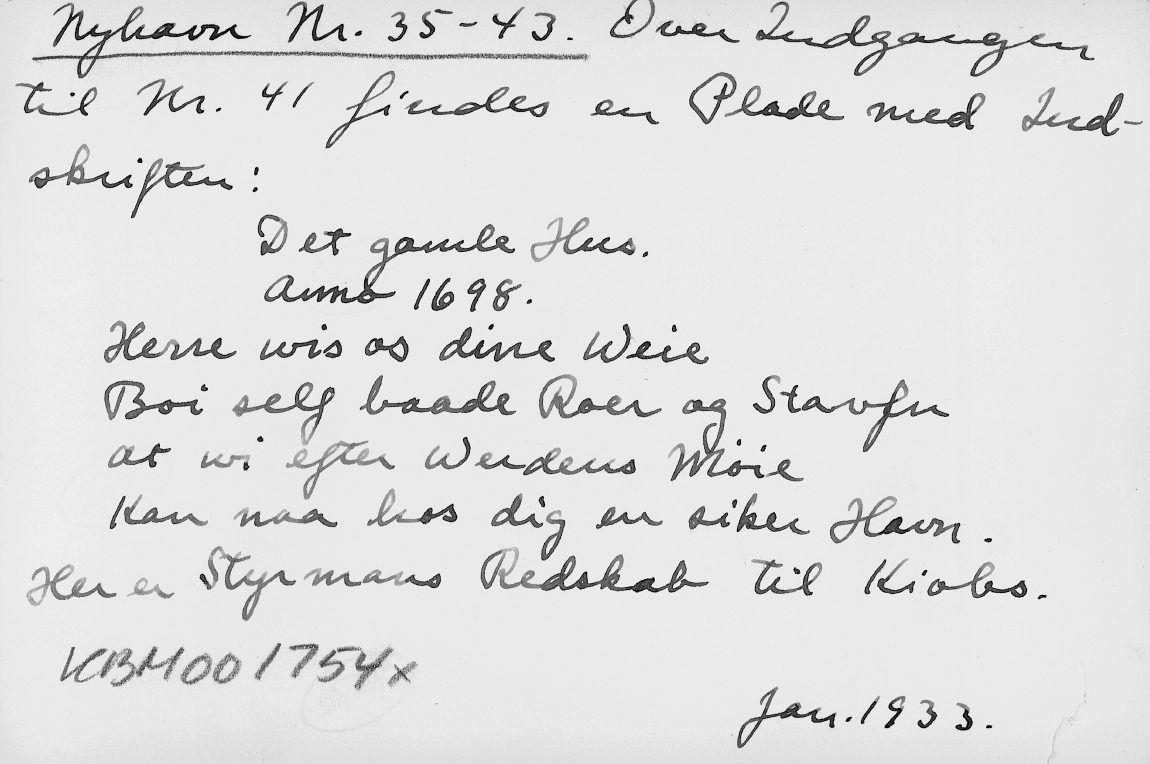 Nyhavn Nr. 35-43. Over Indgangen
til Nr. 41 findes en Plade med Ind-
skriften:
Det gamle Hus.
Anno 1698.
Herre wis os dine Weie
Boi selg baade Roer og Stavfn
at wi efter Werdens Möie
Kan naa hos dig en siker Havn.
Her er Styrmans Redskab til Kiobs.
KBM001754x
Jan. 1933.